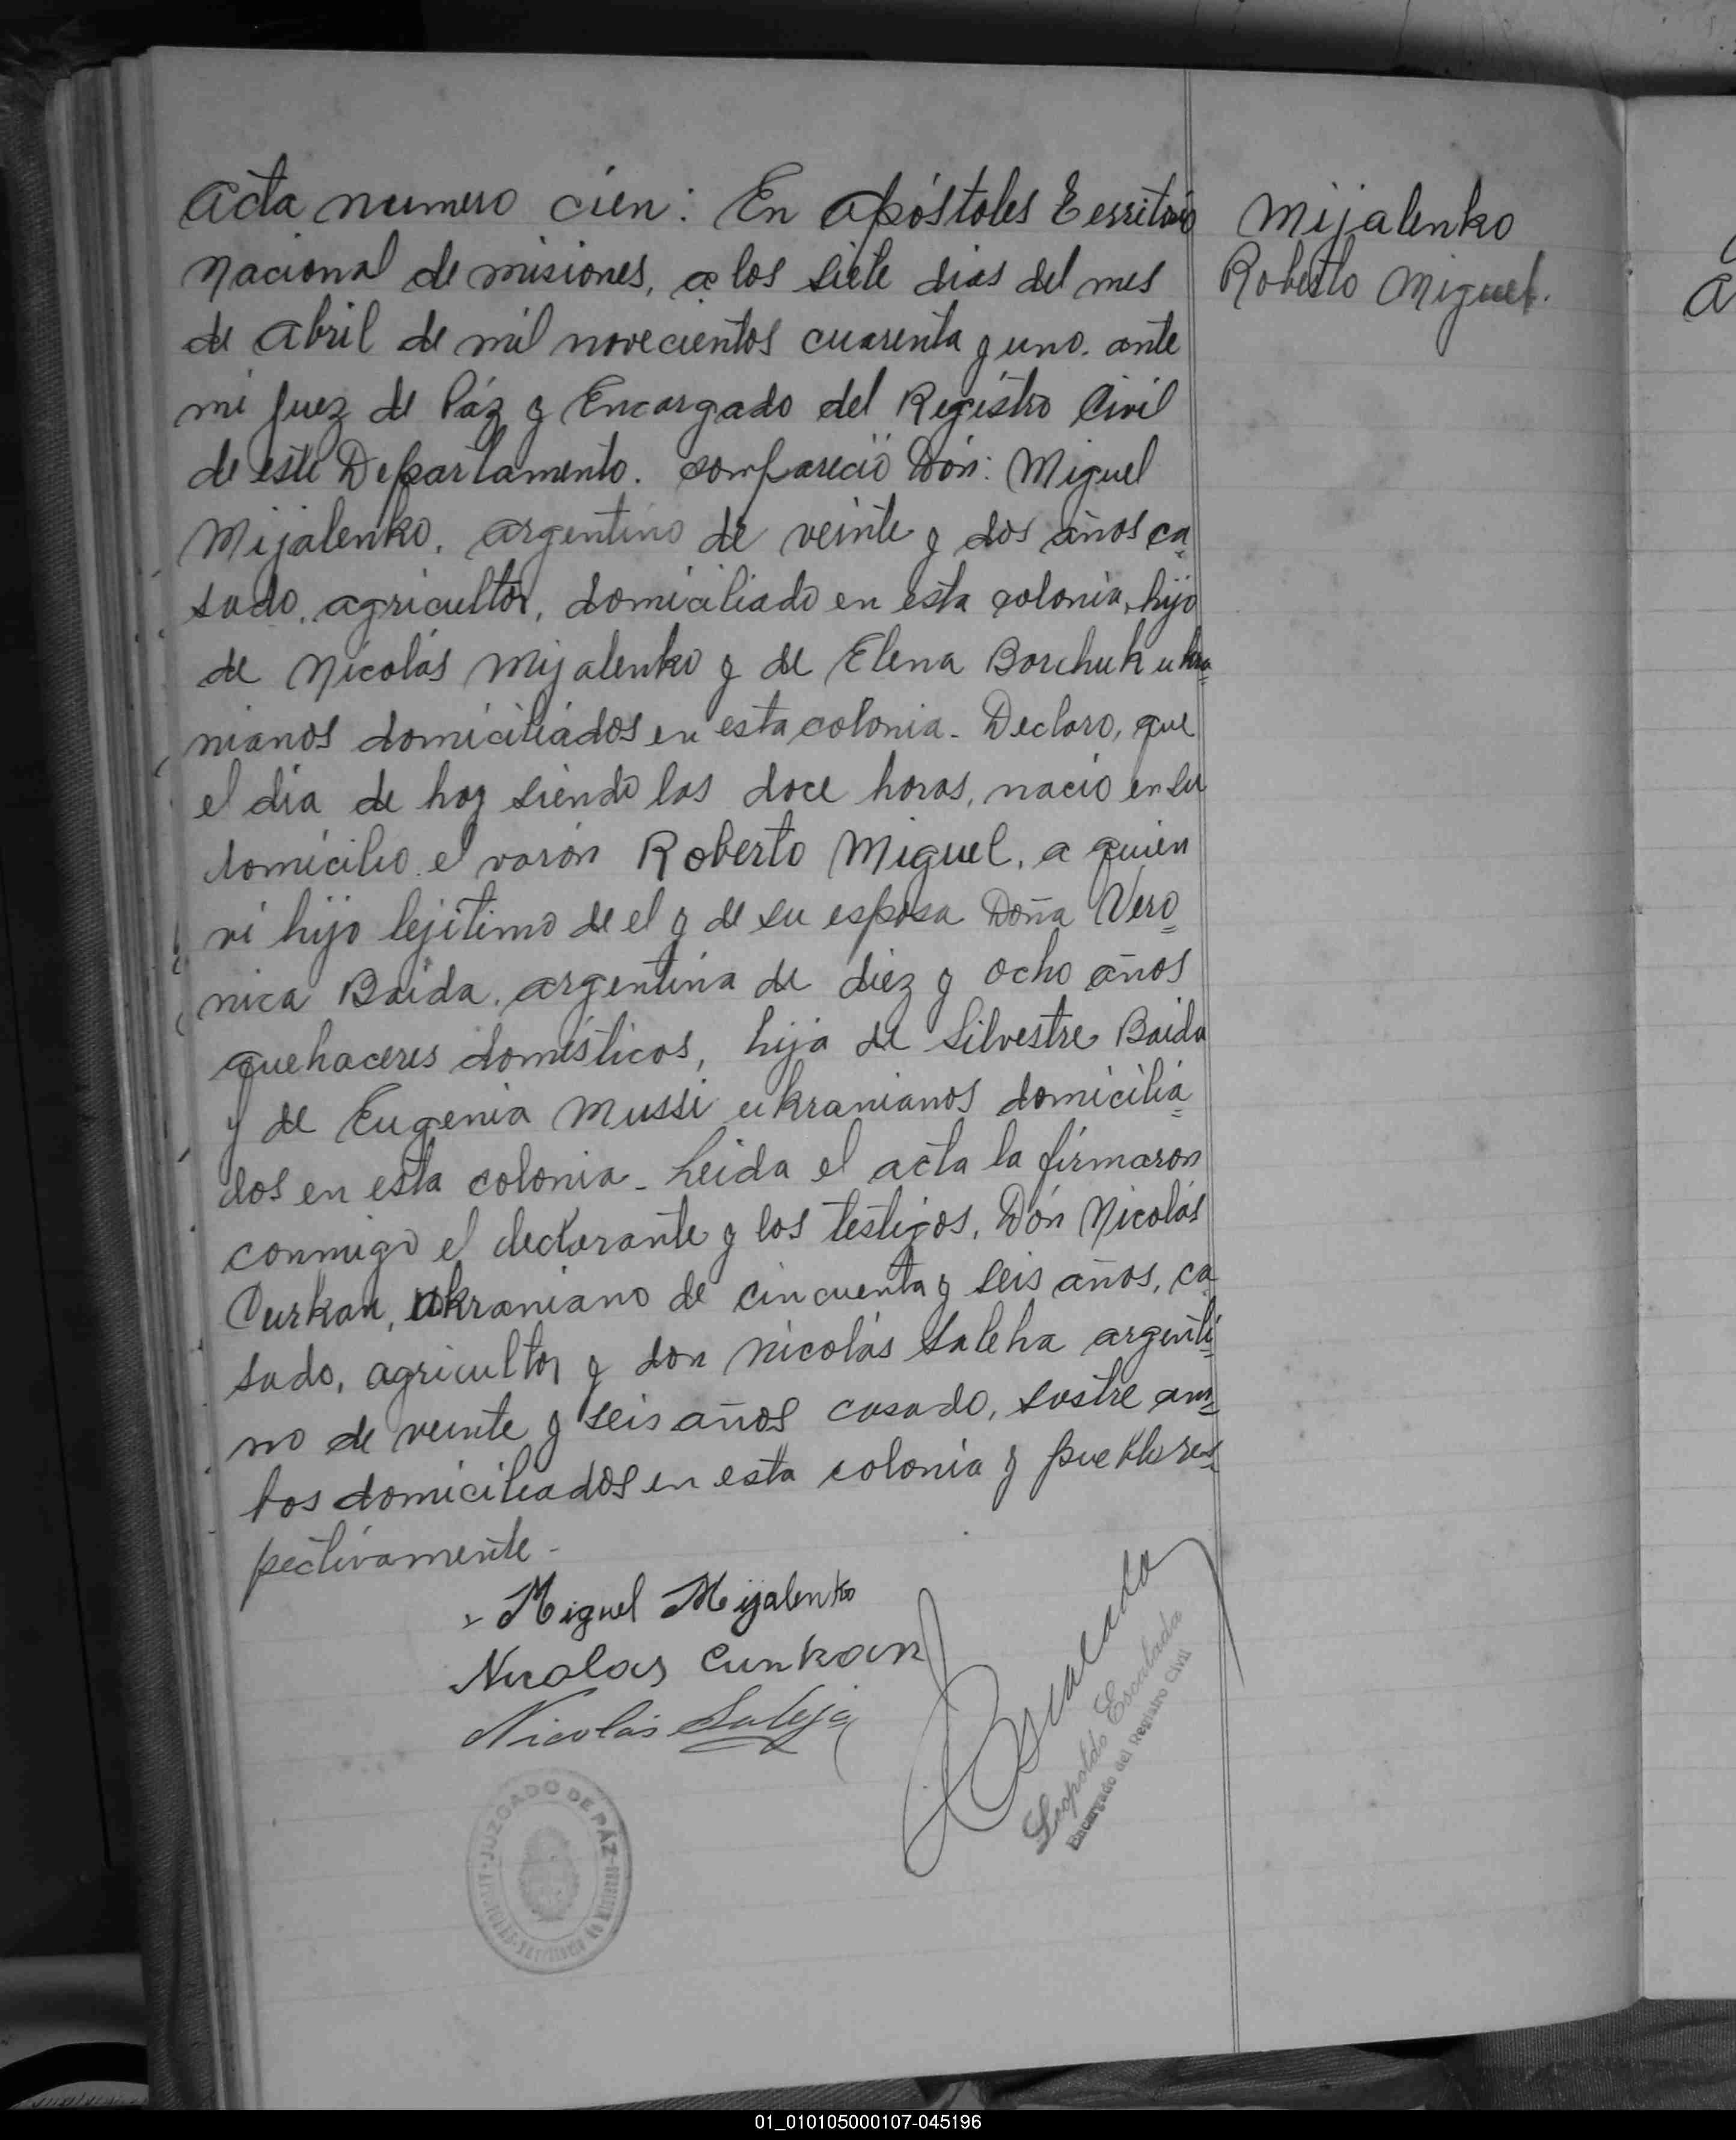 Acta numero cien: En Apóstoles Territorio
Nacional de Misiones, a los siete dias del mes
de Abril de mil novecientos cuarenta y uno. ante
mi Juez de Páz y Encargado del Registro Civil
de este Departamento. compareció Don: Miguel
Mijalenko, argentino de veinte y dos años ca
sado, agricultor, domiciliado en esta colonia, hijo
de Nicolás Mijalenko y de Elena Borchuk ukra=
nianos domiciliados en esta colonia - Declaro, que
el dia de hoy siendo las doce horas, nació en su
domicilio el varón Roberto Miguel, a quien
vi hijo lejitimo de el y de su esposa Doña Vero=
nica Baida, argentina de diez y ocho años
quehaceres domésticos, hija de Silvestre Baida
y de Eugenia Mussi ukranianos domicilia=
dos en esta colonia - Leida el acta la firmaron
conmigo el declarante y los testigos, Dón Nicolás
Curkan, ukraniano de cincuenta y seis años, ca
sado, agricultor y don Nicolás Saleha argenti=
no de veinte y seis años casado, sastre am=
bos domiciliados en esta colonia y pueblo res
pectivamente -
Mijalenko
Roberto Miguel.
Miguel Mijalenko
Nicolas Curkan
Nicolás Saleja
Escalada
Leopoldo Escalada
Encargado del Registro Civil
JUZGADO DE PÁZ
01_010105000107-045196